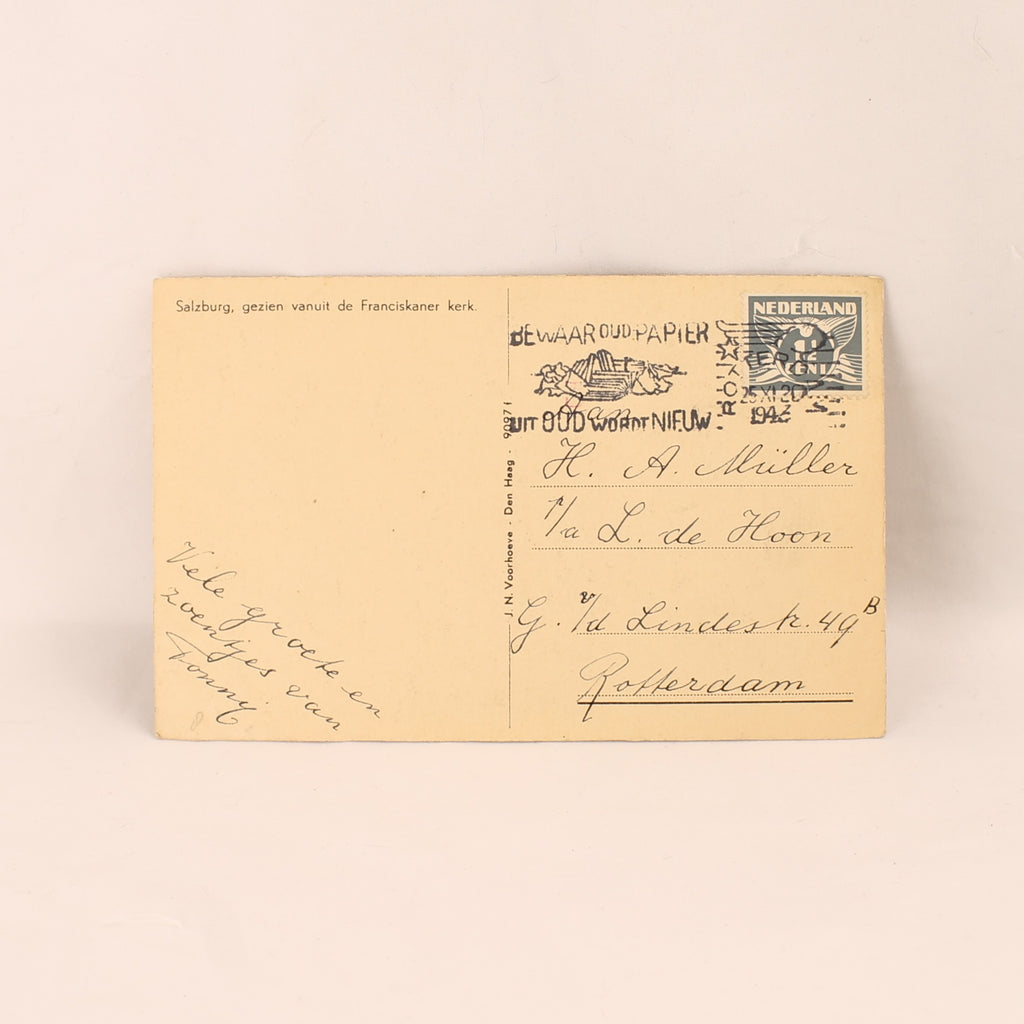 Salzburg, gezien vanuit de Franciskaner kerk.
Vele groete en
zoentjes van
Tonny
J. N. Voorhoeve - Den Haag - 90971
BEWAAR OUD-PAPIER
UIT OUD WORDT NIEUW
NEDERLAND
CENT
25 XI 20
1943
Aan
H. A. Müller
p/a L. de Hoon
G. v/d Lindestr. 49B
Rotterdam